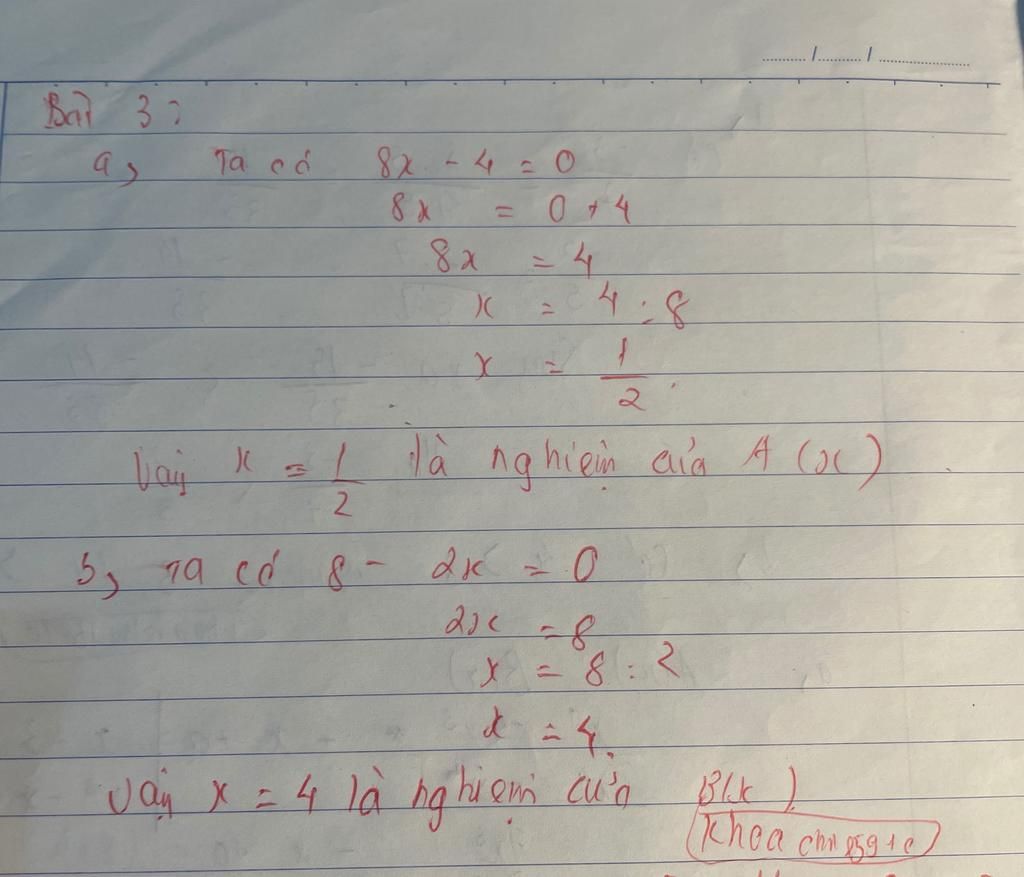 Bài 3:
a, Ta có 8x - 4 = 0
8x = 0 + 4
8x = 4
x = 4 : 8
x = 1/2.
Vậy x = 1/2 là nghiệm của A (x)
b, Ta có 8 - 2x = 0
2x = 8
x = 8 : 2
x = 4.
Vậy x = 4 là nghiệm của B(x).
Khoa